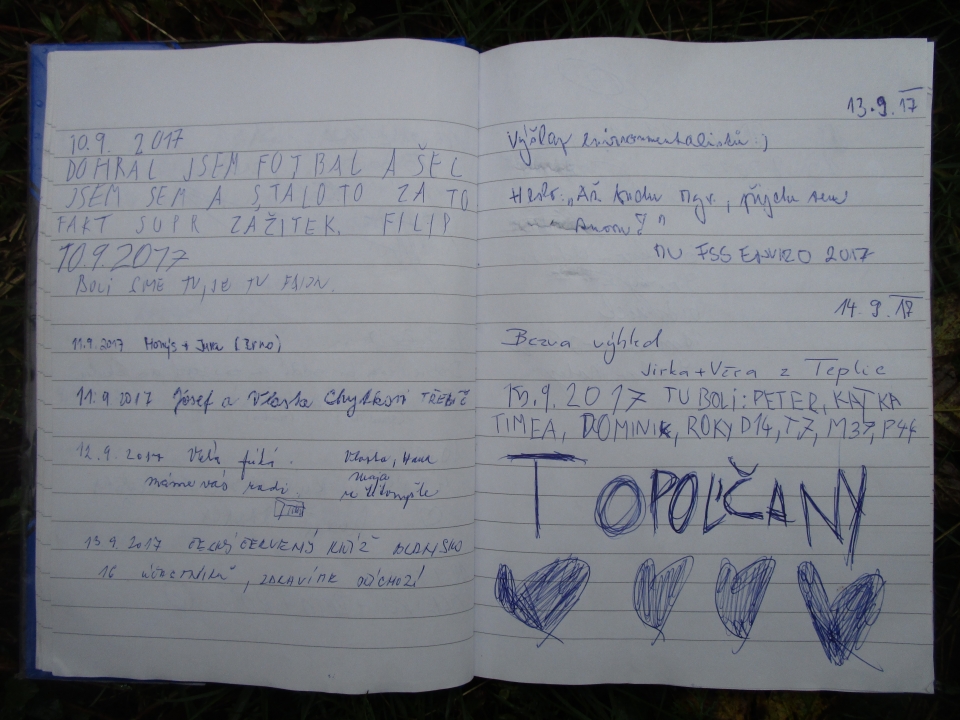 10.9. 2017
DOHRAL JSEM FOTBAL A ŠEL
JSEM SEM A STALO TO ZA TO
FAKT SUPR ZÁŽITEK. FILIP
10.9.2017
BOLI SME TU, JE TU FAJN.
11.9.2017 Honys + Jura (Brno)
11.9 2017 Josef a Vlasta Chytkovi TŘEBÍČ
12.9.2017 Vlasta, Hana
máme vás radi.
13.9.2017 ČESKÝ ČERVENÝ KŘÍŽ BLANSKO
16 ÚČASTNÍKŮ, ZDRAVÍME
13.9.17
Výšlap environmentalistů :)
"Až budu Mgr., přijdu sem
znovu!"
MU FSS ENVIRO 2017
14.9.17
Bezva výhled
Jirka + Věra z Teplic
15.9.2017 TU BOLI: PETER, KAŤKA
TIMEA, DOMINIK, ROKY D14, T7, M37, P44
TOPOĽČANY